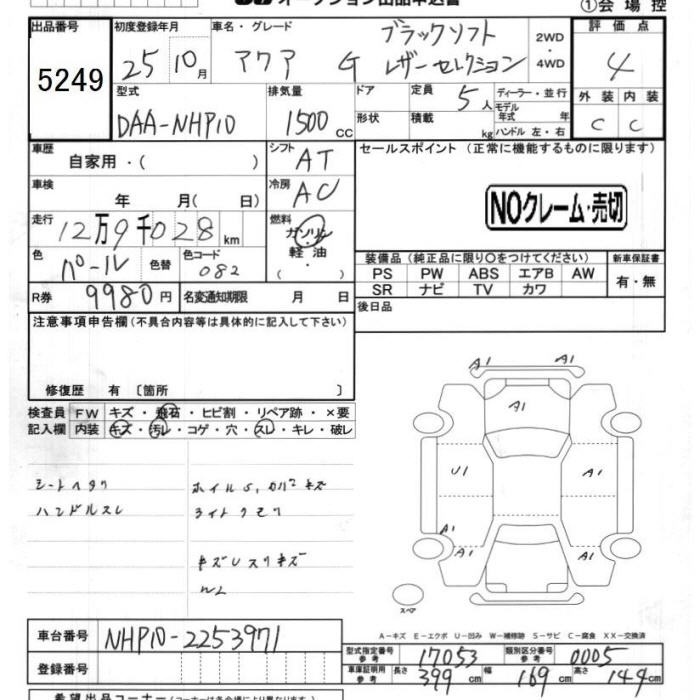 オークション出品申込書
①会場控
出品番号 5249
初度登録年月 25年10月
車名・グレード アクア G ブラックソフトレザーセレクション
2WD・4WD
評価点 4
外装 C 内装 C
型式 DAA-NHP10
排気量 1500 CC
ドア
形状
定員 5人
積載 kg
ディーラー・並行
モデル年式 年
ハンドル 左・右
車歴 自家用・( )
シフト AT
セールスポイント (正常に機能するものに限ります)
車検 年 月(日)
冷房 AC
NOクレーム・売切
走行 12万9千028km
燃料 ガソリン・軽油・( )
色 パール 色替
色コード 082
装備品 (純正品に限り○をつけてください)
新車保証書
PS PW ABS エアB AW
SR ナビ TV カワ
有・無
R券 9980円
名変通知期限 月 日
後日品
注意事項申告欄 (不具合内容等は具体的に記入して下さい)
修復歴 有 〔箇所 〕
検査員記入欄
FW キズ・飛石・ヒビ割・リペア跡・×要
内装 キズ・汚レ・コゲ・穴・スレ・キレ・破レ
シートヘタリ
ハンドルスレ
ホイルS, カバーキズ
ライトクモリ
キズUスリキズ
A1 A1
A1
U1 A1
A1
A1 A1
スペア
A-キズ E-エクボ U-凹み W-補修跡 S-サビ C-腐食 XX-交換済
車台番号 NHP10-2253971
登録番号
型式指定番号 参考 17053
類別区分番号 参考 0005
車庫証明用 参考 長さ 399 cm 幅 169 cm 高さ 144 cm
希望出品コーナー